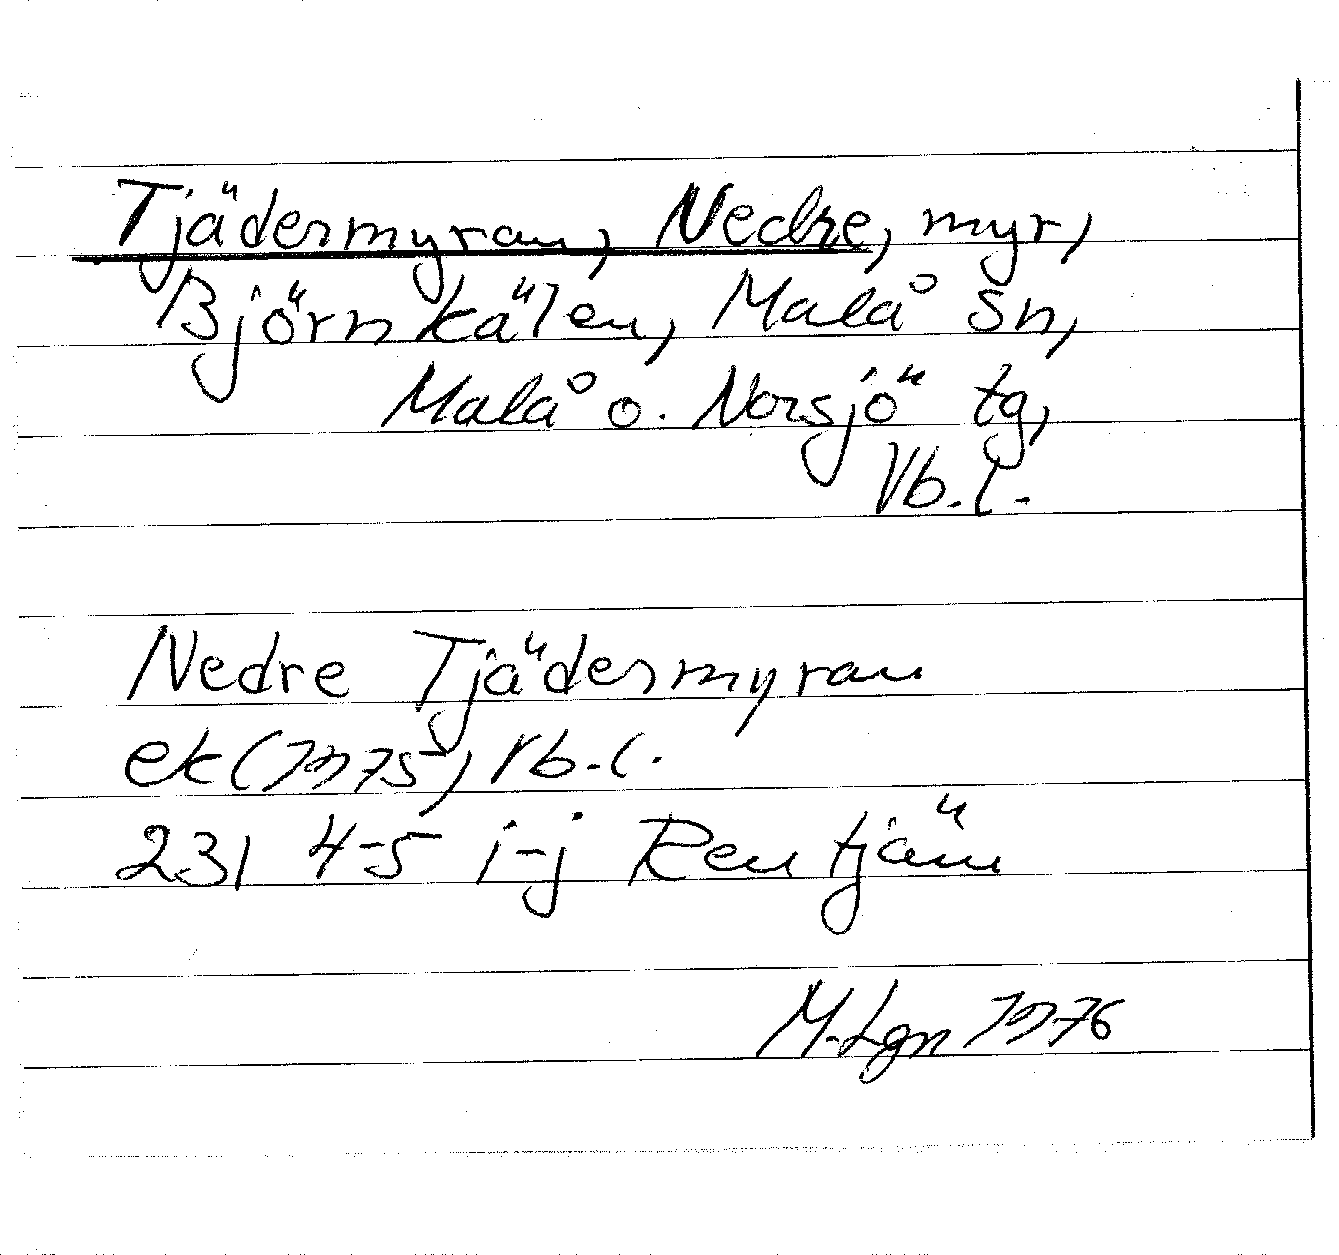 Tjädermyran, Nedre, myr,
Björnkälen, Malå sn,
Malå o. Norsjö tg,
Vb.l.
Nedre Tjädermyran
ek(1975) Vb.l.
231 4-5 i-j Rentjärn
M.Lgn 1976